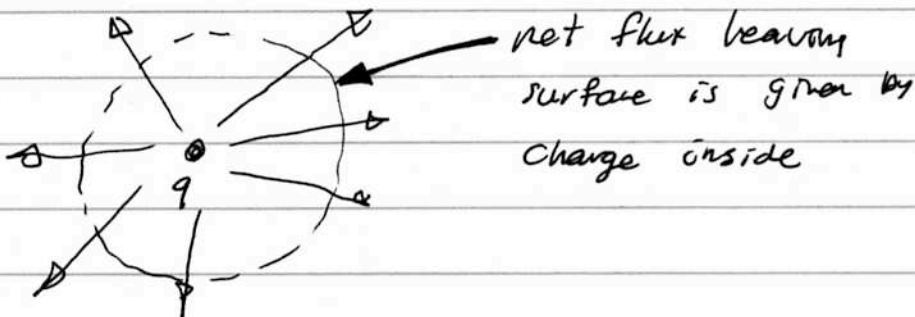 net flux leaving
surface is given by
charge inside
q